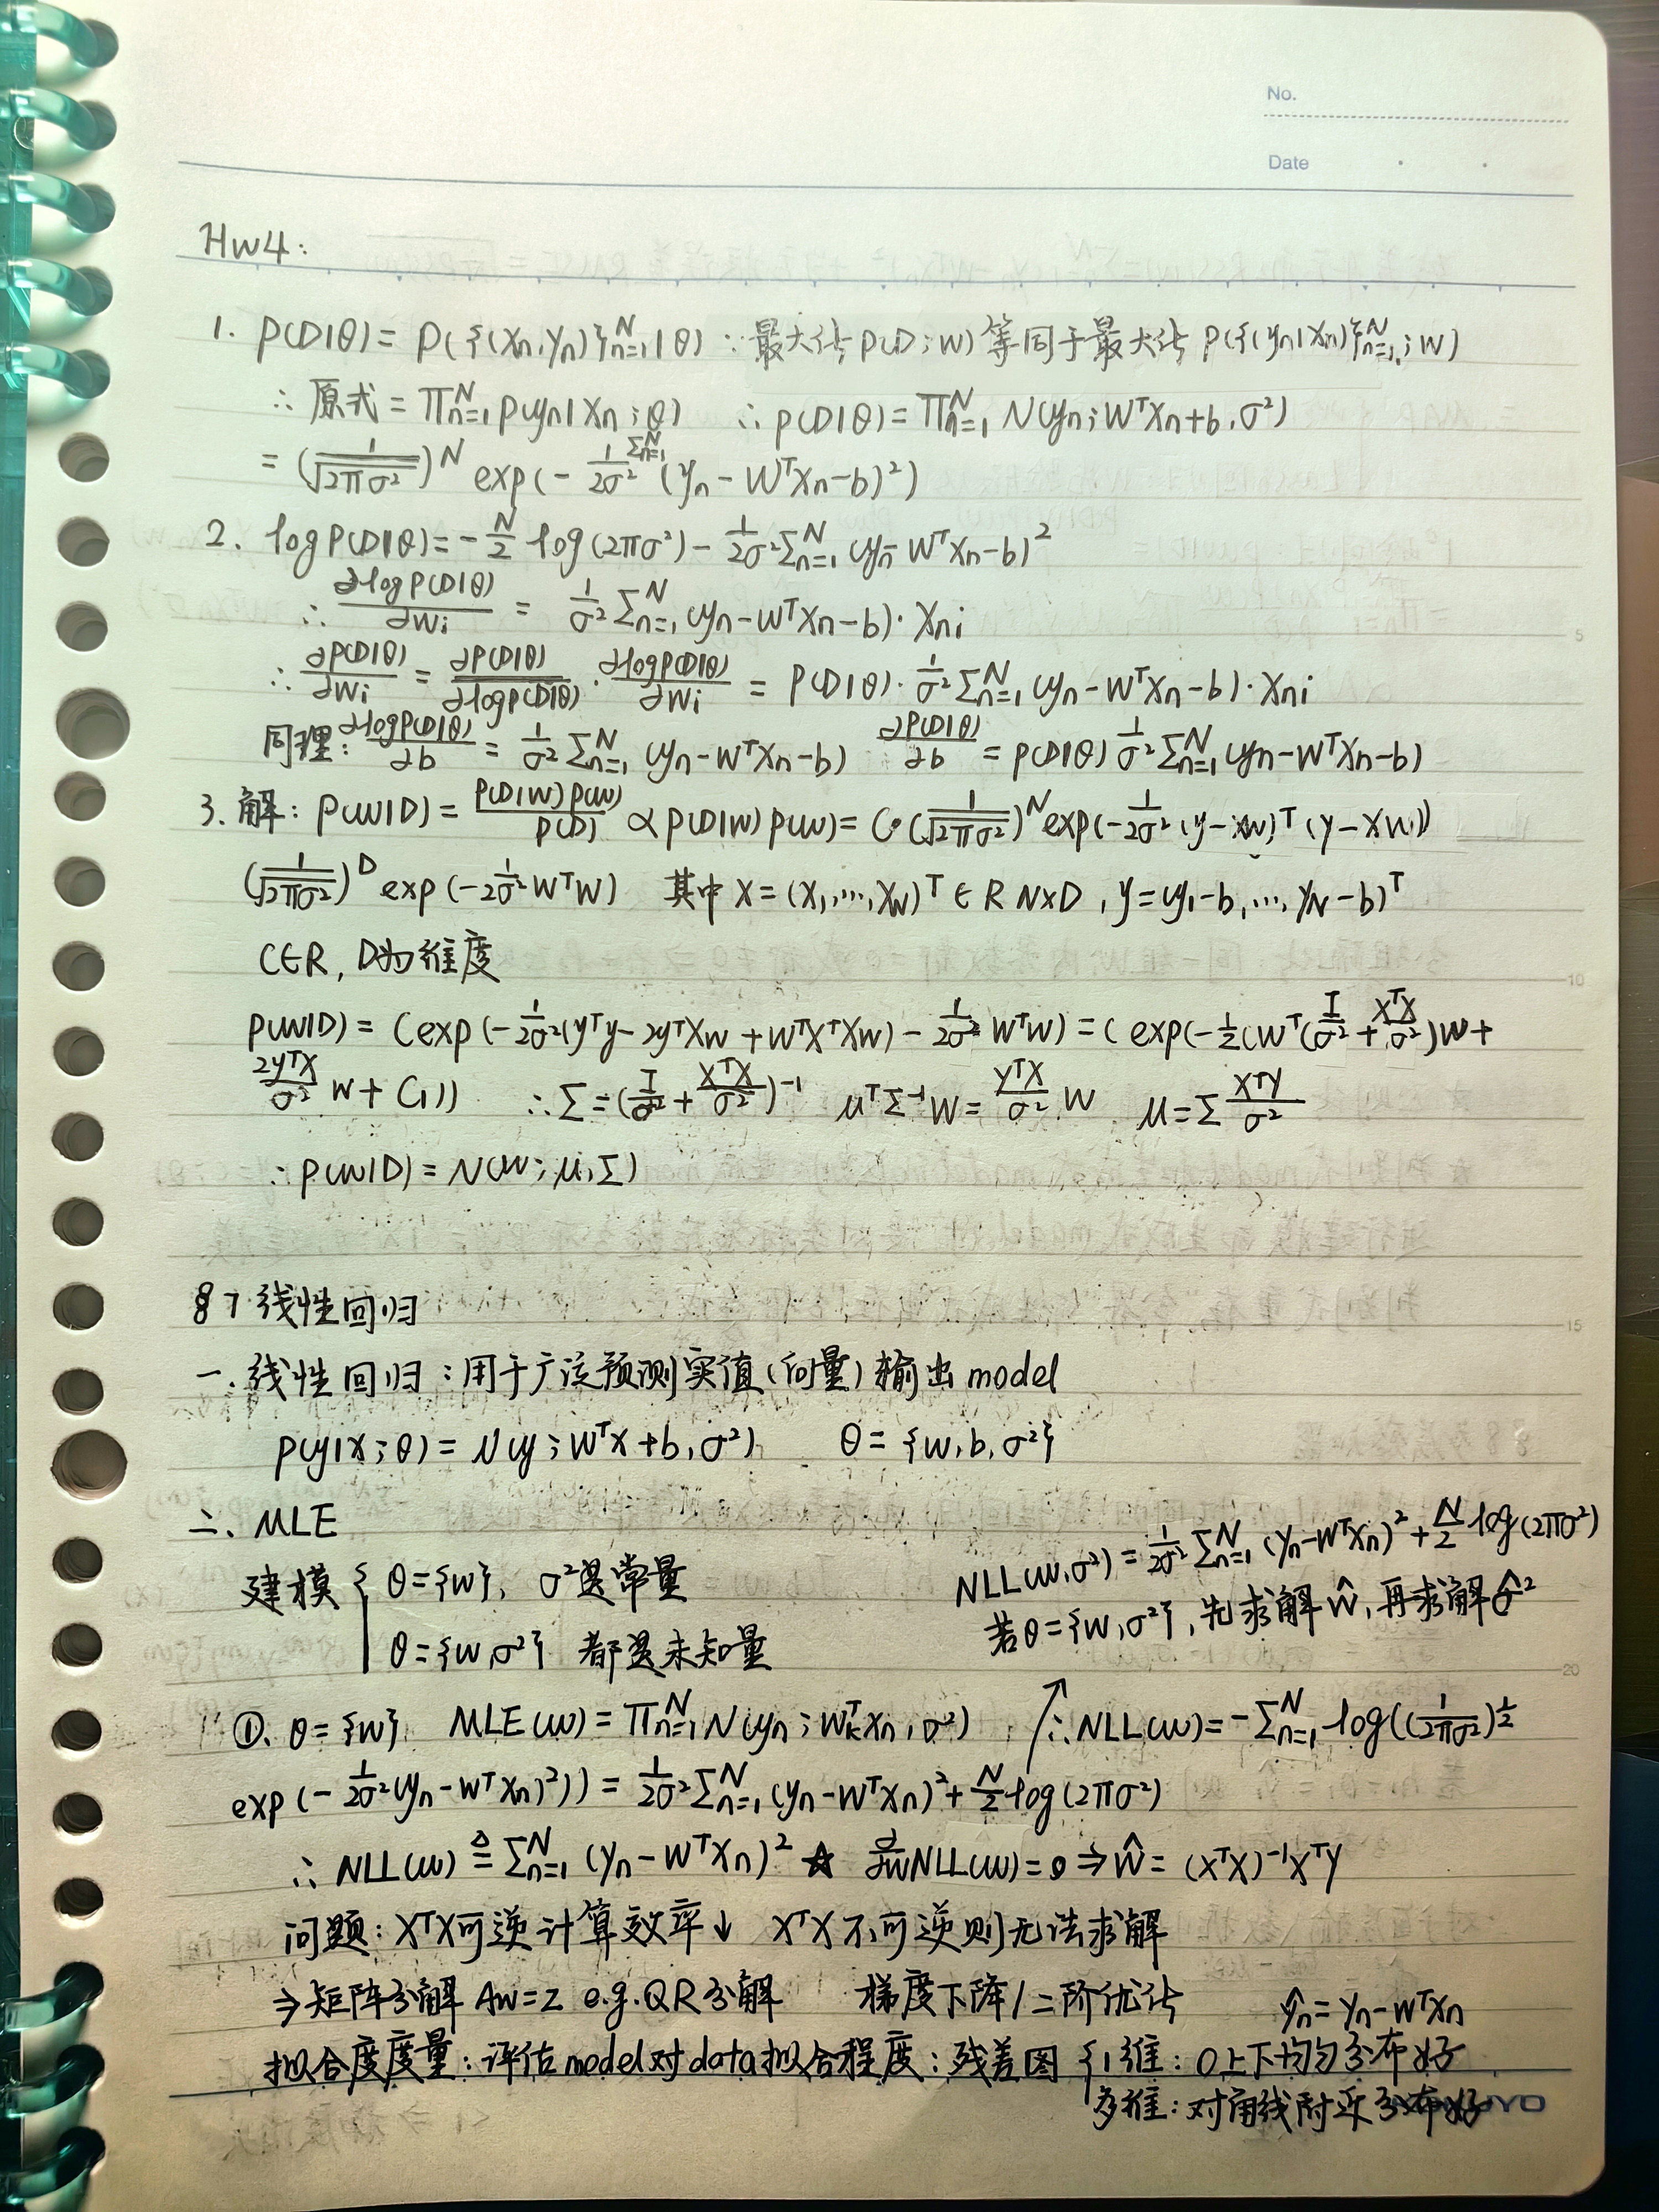 No.
Date
HW4:
1. P(D|θ) = P({(Xn,yn)}_{n=1}^N|θ) ∵最大化 P(D;W) 等同于最大化 P({(yn|Xn)}_{n=1}^N;W)
∴ 原式 = Π_{n=1}^N P(yn|Xn;θ) ∴ P(D|θ) = Π_{n=1}^N N(yn; W^T Xn+b, σ²)
= (1/√(2πσ²))^N exp(- 1/2σ² Σ_{n=1}^N (yn - W^T Xn - b)²)
2. log P(D|θ) = - N/2 log(2πσ²) - 1/2σ² Σ_{n=1}^N (yn - W^T Xn - b)²
∴ ∂log P(D|θ)/∂Wi = 1/σ² Σ_{n=1}^N (yn - W^T Xn - b)·Xni
∴ ∂P(D|θ)/∂Wi = ∂P(D|θ)/∂log P(D|θ) · ∂log P(D|θ)/∂Wi = P(D|θ)· 1/σ² Σ_{n=1}^N (yn - W^T Xn - b)·Xni
同理: ∂log P(D|θ)/∂b = 1/σ² Σ_{n=1}^N (yn - W^T Xn - b) ∂P(D|θ)/∂b = P(D|θ) 1/σ² Σ_{n=1}^N (yn - W^T Xn - b)
3. 解: P(W|D) = P(D|W)P(W)/P(D) ∝ P(D|W)P(W) = C·(1/√(2πσ²))^N exp(- 1/2σ² (y-XW)^T (y-XW))
(1/√(2πσ²))^D exp(- 1/2σ² W^T W) 其中 X = (X1,…,XN)^T ∈ R N×D, y = (y1-b,…,yN-b)^T
C∈R, D为维度
P(W|D) = C exp(- 1/2σ² (y^T y - 2y^T XW + W^T X^T XW) - 1/2σ² W^T W) = C exp(- 1/2 (W^T (I/σ² + X^T X/σ²)W +
2y^T X/σ² W + C1)) ∴ Σ = (I/σ² + X^T X/σ²)^{-1} μ^T Σ^{-1} W = y^T X/σ² W μ = Σ X^T y/σ²
∴ P(W|D) = N(W; μ, Σ)
§7 线性回归
一. 线性回归: 用于广泛预测实值(向量)输出 model
P(y|X;θ) = N(y; W^T X+b, σ²) θ = {W, b, σ²}
二、MLE
建模 { θ={W}, σ²是常量
θ={W,σ²} 都是未知量
NLL(W,σ²) = 1/2σ² Σ_{n=1}^N (yn - W^T Xn)² + N/2 log(2πσ²)
若θ={W,σ²}, 先求解 Ŵ, 再求解 σ̂²
①. θ={W} MLE(W) = Π_{n=1}^N N(yn; W_k^T Xn, σ²) ↗ ∴ NLL(W) = -Σ_{n=1}^N log((1/2πσ²)^{1/2}
exp(- 1/2σ² (yn - W^T Xn)²)) = 1/2σ² Σ_{n=1}^N (yn - W^T Xn)² + N/2 log(2πσ²)
∴ NLL(W) ≜ Σ_{n=1}^N (yn - W^T Xn)² ☆ ∂/∂W NLL(W) = 0 ⇒ Ŵ = (X^T X)^{-1} X^T y
问题: X^T X可逆计算效率↓ X^T X 不可逆则无法求解
⇒矩阵分解 AW=Z e.g.QR分解 梯度下降/二阶优化
ŷn = yn - W^T Xn
拟合度度量: 评估model对data拟合程度: 残差图 {1维: 0上下均匀分布好
多维: 对角线附近分布好
5
10
15
20